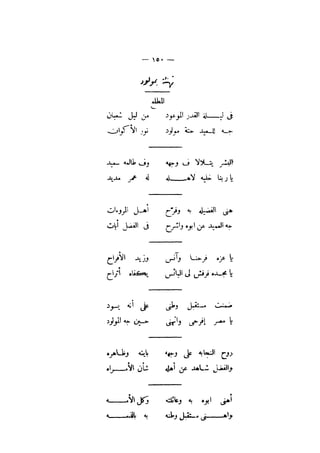 — ١٥٠ —
تهنئة بمولود
المطلع
فى ليـــلة القدر الموعود من ليل شعبان
جــه للسعيد جنة مولود نور الأكوان
البشر يتــلالا ف وجهه وف طالعه سعيد
يا ربنا خليه لاهــــله له عمر مديد
هنى الفضيله به وفرّح أهــل المروءات
جه العميد عن ابوه واشرح فى الفضل آيات
يا عزه فرحنــا وآنس وزيد الأفراح
يا مجــده فرفش لى البائس يكفاه أتراح
ضمنت مستقبل وطنى على أنه يسود
يا مصر إفرحى واتهنى حسين جه المولود
روح النجابه على وجهه باينه وظــاهره
والفضل شــاهد عن أهله شأن الأمــــراء
أهنى ابوه به وعائلته وكل الأمــــه
واهــــنى مستقبل وطنه به بالقســــمه